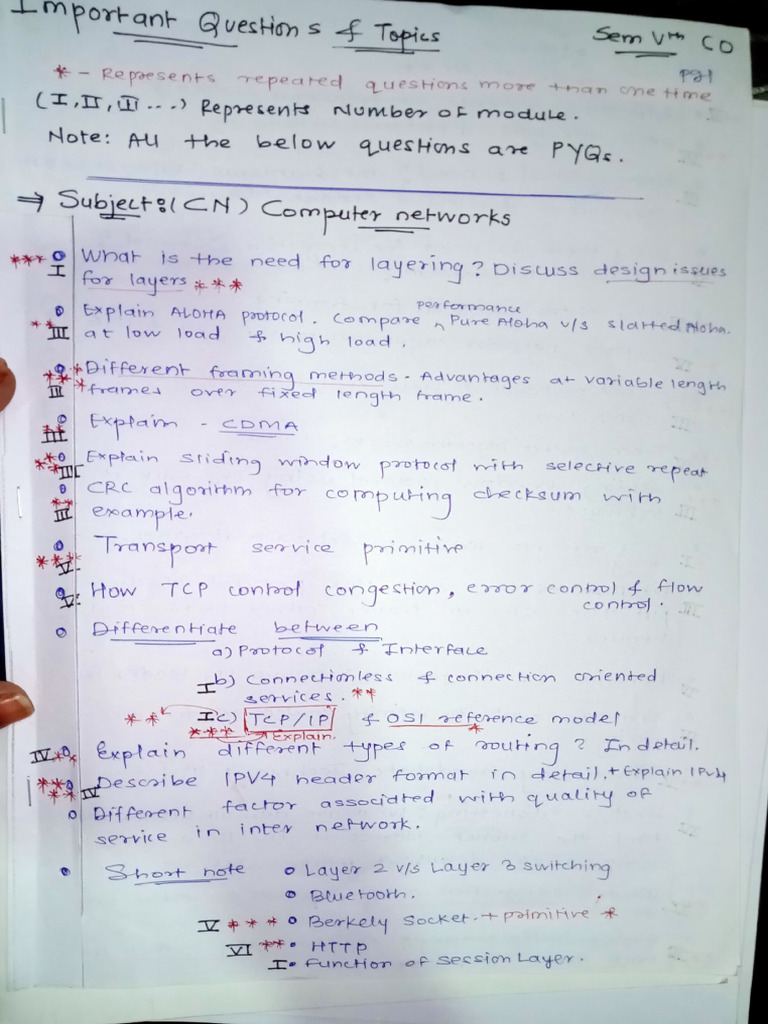 Important Questions & Topics
Sem Vth CO
pg1
* - Represents repeated questions more than one time
(I, II, III ...) Represents Number of module.
Note: All the below questions are PYQs.
⇒ Subject: (CN) Computer networks
*** I What is the need for layering? Discuss design issues
for layers ***
Explain ALOHA protocol. Compare performance Pure Aloha v/s slatted Aloha.
** III at low load & high load.
Different framing methods. Advantages at variable length
III frames over fixed length frame.
III Explain - CDMA
** III Explain sliding window protocol with selective repeat
CRC algorithm for computing checksum with
** III example.
Transport service primitive
*** V
V: How TCP control congestion, error control & flow
control.
Differentiate between
a) Protocol & Interface
I b) Connectionless & connection oriented
services. **
** I c) TCP/IP & OSI reference model
*** Explain. *
IV ** Explain different types of routing? In detail.
Describe IPV4 header format in detail. + Explain IPv4
IV
Different factor associated with quality of
service in inter network.
Short note
Layer 2 v/s Layer 3 switching
Bluetooth.
V *** Berkely socket. + primitive *
VI ** HTTP
I Function of session Layer.